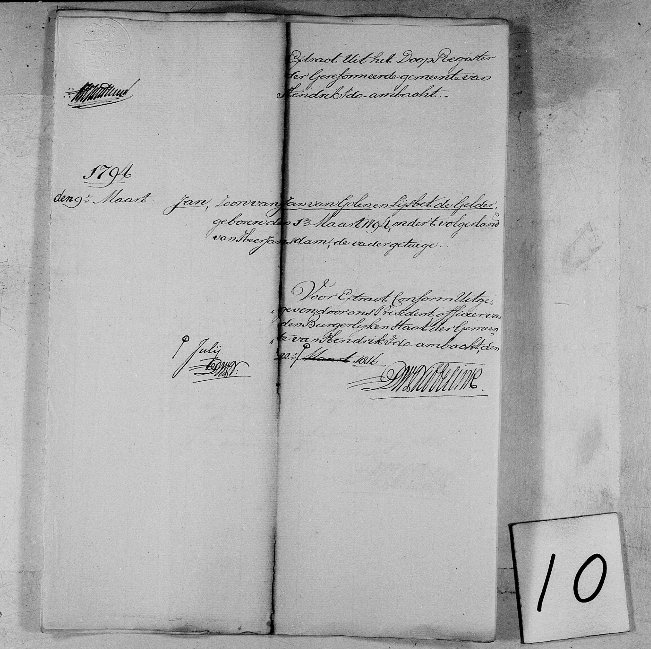 Extract Uit het Doop Register
der Gereformeerde gemeente van
Hendrik Ido ambacht.
1794
den 9e Maart Jan, Zoon van Jan van Gelder en Lijsbet de Gelder,
geboren den 1e Maart 1794, onder t volgerland
van Heer Jansdam, de vader getuige.
Voor Extract Conform Uitge,
geven, door ons President officier van
den Burgerlijken Staat der Gemeen,
te van Hendrik Ido ambacht, den
Maart 1814
Julij
10